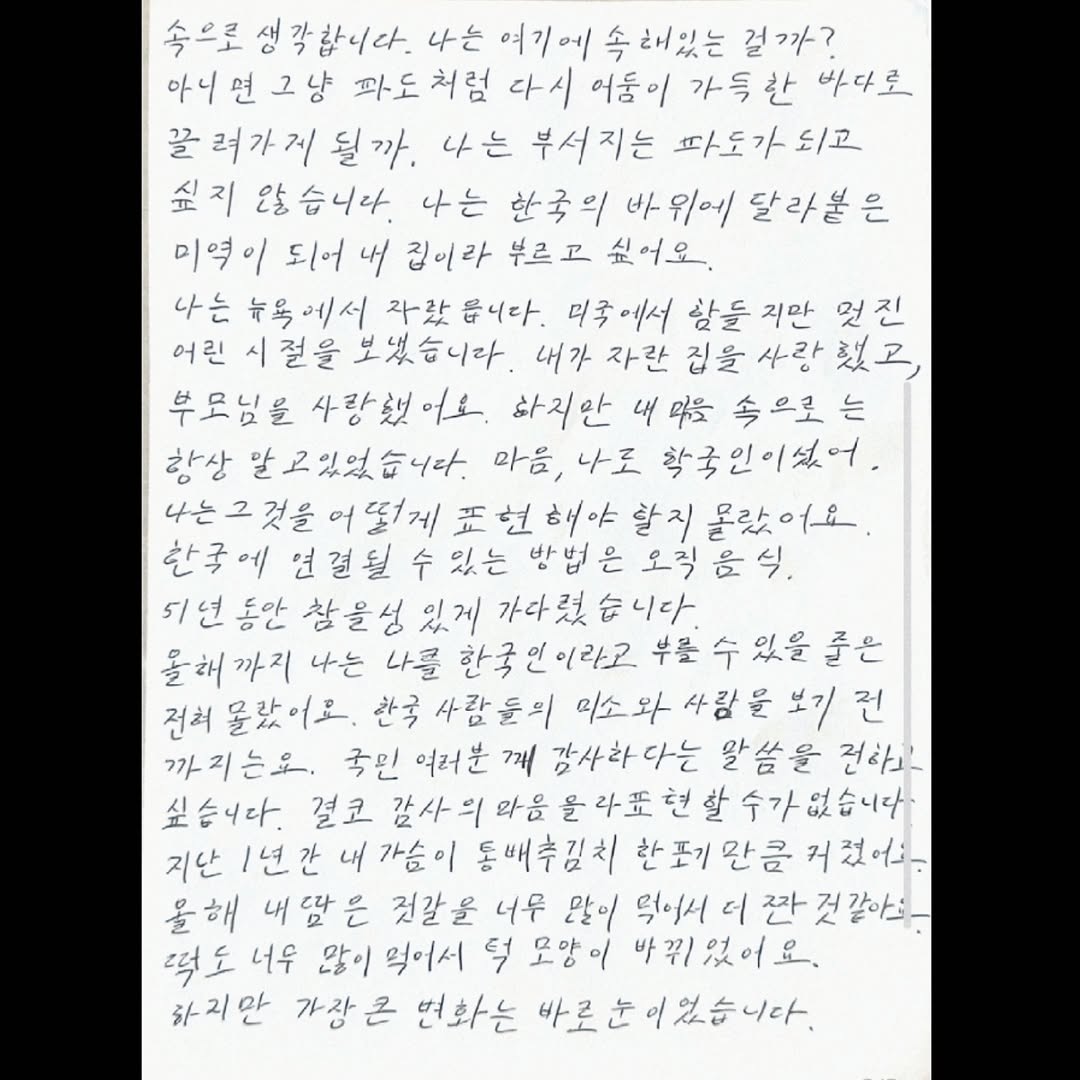 속으로 생각합니다. 나는 여기에 속해있는 걸까?
아니면 그냥 파도처럼 다시 어둠이 가득한 바다로
끌려가게 될까. 나는 부서지는 파도가 되고
싶지 않습니다. 나는 한국의 바위에 달라붙은
미역이 되어 내 집이라 부르고 싶어요.
나는 뉴욕에서 자랐습니다. 미국에서 힘들지만 멋진
어린 시절을 보냈습니다. 내가 자란 집을 사랑했고,
부모님을 사랑했어요. 하지만 내 마음 속으로는
항상 알고있었습니다. 마음, 나도 학국인이섰어.
나는 그것을 어떻게 표현해야 할지 몰랐어요.
한국에 연결될 수 있는 방법은 오직 음식.
51년 동안 참을성 있게 가다렸습니다.
올해까지 나는 나를 한국인이라고 부를 수 있을 줄은
전혀 몰랐어요. 한국 사람들의 미소와 사람을 보기 전
까지는요. 국민 여러분께 감사하다는 말씀을 전하고
싶습니다. 결코 감사의 마음을 라표현할 수가 없습니다.
지난 1년간 내 가슴이 통배추김치 한포기만큼 커졌어요.
올해 내 땀은 젓갈을 너무 많이 먹어서 더 짠 것같아요.
떡도 너무 많이 먹어서 턱 모양이 바뀌었어요.
하지만 가장 큰 변화는 바로 눈이었습니다.